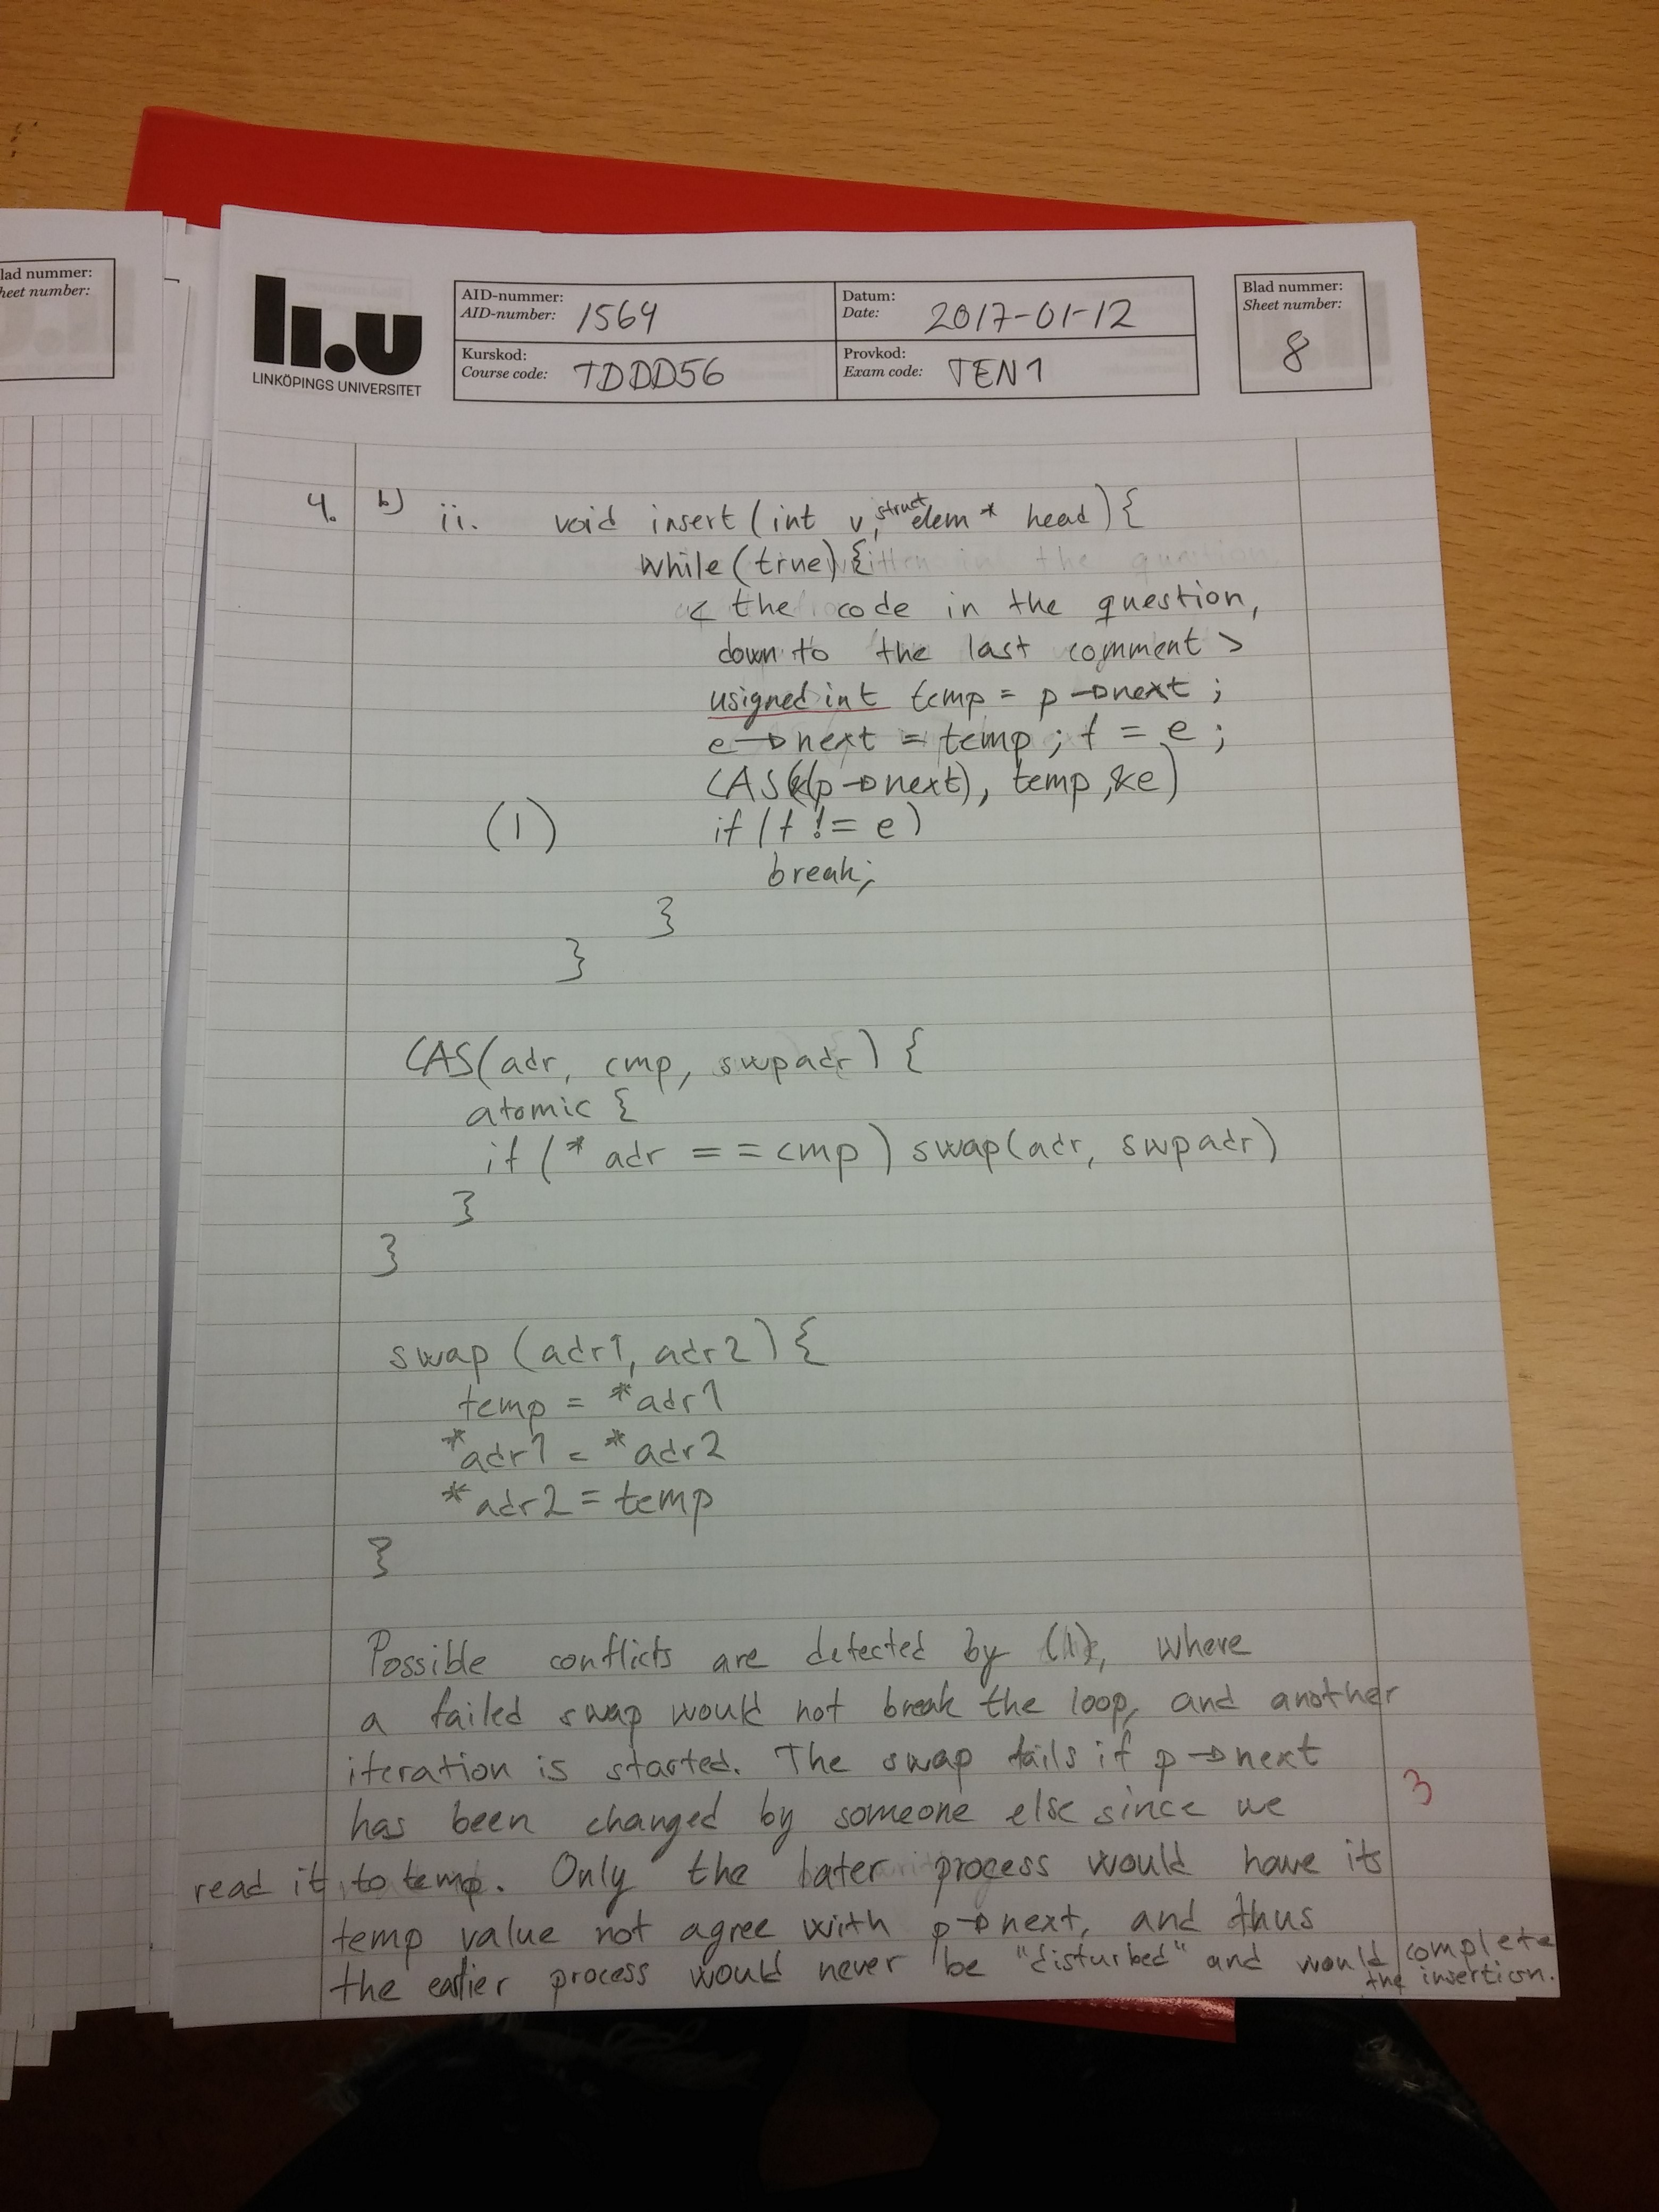 lad nummer:
heet number:
li.u
LINKÖPINGS UNIVERSITET
AID-nummer:
AID-number: 1564
Datum:
Date: 2017-01-12
Kurskod:
Course code: TDDD56
Provkod:
Exam code: TEN1
Blad nummer:
Sheet number:
8
4. b) ii. void insert (int v, struct elem * head) {
while (true) {
< the code in the question,
down to the last comment >
usigned int temp = p->next ;
e->next = temp ; t = e ;
CAS(&(p->next), temp, &e)
(1) if (t != e)
break;
}
}
CAS(adr, cmp, swpadr) {
atomic {
if (* adr == cmp) swap(adr, swpadr)
}
}
swap (adr1, adr2) {
temp = *adr1
*adr1 = *adr2
*adr2 = temp
}
Possible conflicts are detected by (1), where
a failed swap would not break the loop, and another
iteration is started. The swap fails if p->next
has been changed by someone else since we
3
read it to temp. Only the later process would have its
temp value not agree with p->next, and thus
the earlier process would never be "disturbed" and would complete
the insertion.